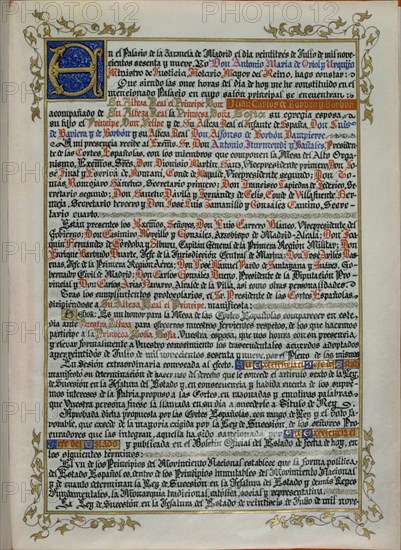 En el Palacio de la Zarzuela de Madrid el día veintitres de Julio de mil nove-
cientos sesenta y nueve, Yo Don Antonio María de Oriol y Urquijo
Ministro de Justicia, Notario Mayor del Reino, hago constar:
Que siendo las once horas del día de hoy me he constituido en el
mencionado Palacio en cuyo salón principal se encuentran,
Su Alteza Real el Príncipe Don Juan Carlos de Borbón y Borbón
acompañado de Su Alteza Real la Princesa Doña Sofía su egregia esposa,
su hijo el Príncipe Don Felipe y de Su Alteza Real el Infante de España, Don Luis
de Baviera y de Borbón y Su Alteza Real Don Alfonso de Borbón Dampierre.
A mi presencia recibe al Excmo. Sr. Don Antonio Iturmendi y Bañales, Presiden-
te de las Cortes Españolas, con los miembros que componen la Mesa de Alto Orga-
nismo, Excmos. Sres. Don Dionisio Martín Sanz, Vicepresidente primero; Don Jo-
sé Finat y Escrivá de Romaní, Conde de Mayalde, Vicepresidente segundo; Don To-
más Romojaro Sánchez, Secretario primero; Don Francisco Lapiedra de Federico, Se-
cretario segundo; Don Sancho Dávila y Fernández de Celis, Conde de Villafuente Ber-
meja, Secretario tercero y Don José Luis Zamanillo y González Camino, Secreta-
rio cuarto.
Están presentes los Excmos. Señores, Don Luis Carrero Blanco, Vicepresidente del
Gobierno; Don Casimiro Morcillo y González, Arzobispo de Madrid-Alcalá; Don Joa-
quín Fernández de Córdoba y Ziburu, Capitán General de la Primera Región Militar; Don
Enrique Barbudo Duarte, Jefe de la Jurisdicción Central de Marina; Don José
Jefe de la Primera Región Aérea; Don José Manuel Pardo de Santayana y Suárez, Go-
bernador Civil de Madrid; Don Carlos González Bueno, Presidente de la Diputación Pro-
vincial y Don Carlos Arias Navarro, Alcalde de la Villa, así como otras personalidades.
Tras los cumplimientos protocolarios, el Sr. Presidente de las Cortes Españolas,
dirigiéndose a Su Alteza Real el Príncipe, manifiesta:
Señor: Es un honor para la Mesa de las Cortes Españolas comparecer en este
día ante Vuestra Alteza para ofreceros nuestros fervientes respetos, de los que hacemos
partícipe a la Princesa Doña Sofía, Vuestra esposa, que nos honra con su presencia,
y elevar formalmente a Vuestro conocimiento los trascendentales acuerdos adoptados
ayer veintidos de Julio de mil novecientos sesenta y nueve, por el Pleno de las mismas
En Sesión extraordinaria convocada al efecto, Su Excelencia
manifestó su determinación de hacer uso de derecho que le concede el artículo sexto de la Ley
de Sucesión en la Jefatura del Estado y, en consecuencia y habida cuenta de los supre-
mos intereses de la Patria, propuso a las Cortes en razonadas y emotivas palabras que
Vuestra persona fuese la llamada en su día a sucederle a Título de Rey.
Aprobada dicha propuesta por las Cortes Españolas, con rango de Ley y el voto fa-
vorable, que excede de la mayoría exigida por la Ley de Sucesión, de los señores Pro-
curadores que las integran, aquella ha sido sancionada por Su Excelencia el
Jefe del Estado y publicada en el Boletín Oficial del Estado de fecha de hoy, en
los siguientes términos:
El VII de los Principios del Movimiento Nacional establece que la forma política
del Estado Español es, dentro de los Principios inmutables del Movimiento Nacional
y de cuanto determinan la Ley de Sucesión en la Jefatura del Estado y demás Leyes
Fundamentales, la Monarquía tradicional, católica, social y representativa.
La Ley de Sucesión en la Jefatura del Estado de veintiseis de Julio de mil nove-